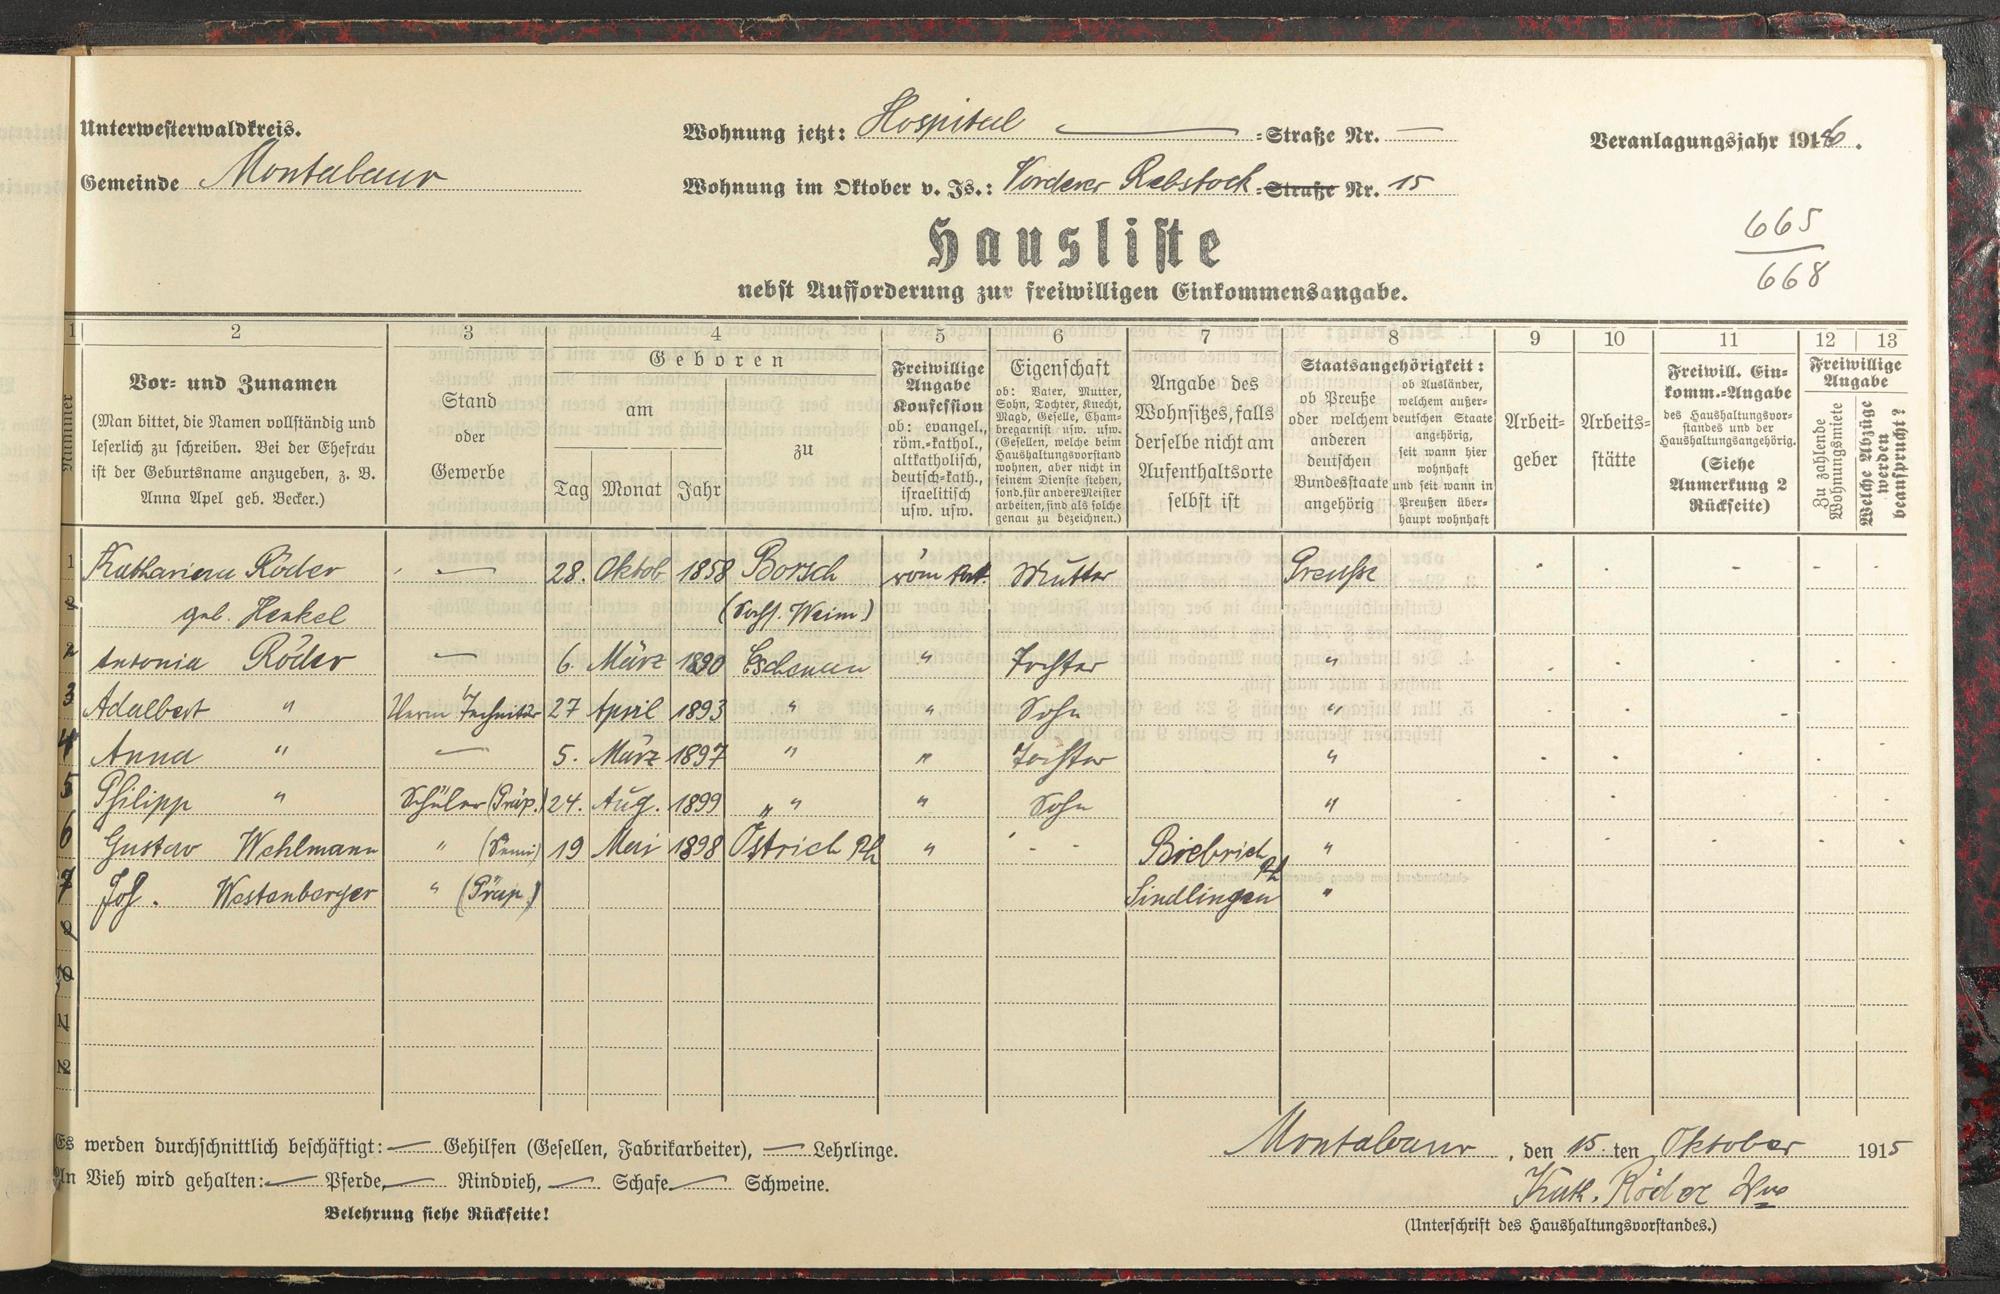 Unterwesterwaldkreis.
Gemeinde Montabaur
Wohnung jetzt: Hospital =Straße Nr. —
Wohnung im Oktober v. Js.: Vorderer Rebstock =Straße Nr. 15
Veranlagungsjahr 1916.
665
668
Hausliste
nebst Aufforderung zur freiwilligen Einkommensangabe.
1 2 3 4 5 6 7 8 9 10 11 12 13
Nummer
Vor- und Zunamen
(Man bittet, die Namen vollständig und
leserlich zu schreiben. Bei der Ehefrau
ist der Geburtsname anzugeben, z. B.
Anna Apel geb. Becker.)
Stand
oder
Gewerbe
Geboren
am
Tag Monat Jahr
zu
Freiwillige
Angabe
Konfession
ob: evangel.,
röm.-kathol.,
altkatholisch,
deutsch-kath.,
israelitisch
usw. usw.
Eigenschaft
ob: Vater, Mutter,
Sohn, Tochter, Knecht,
Magd, Geselle, Cham-
bregarnist usw. usw.
(Gesellen, welche beim
Haushaltungsvorstand
wohnen, aber nicht in
seinem Dienste stehen,
sond. für andere Meister
arbeiten, sind als solche
genau zu bezeichnen.)
Angabe des
Wohnsitzes, falls
derselbe nicht am
Aufenthaltsorte
selbst ist
Staatsangehörigkeit:
ob Preuße
oder welchem
anderen
deutschen
Bundesstaate
angehörig
ob Ausländer,
welchem außer-
deutschen Staate
angehörig,
seit wann hier
wohnhaft
und seit wann in
Preußen über-
haupt wohnhaft
Arbeit-
geber
Arbeits-
stätte
Freiwill. Ein-
komm.-Angabe
des Haushaltungsvor-
standes und der
Haushaltungsangehörig.
(Siehe
Anmerkung 2
Rückseite)
Freiwillige
Angabe
Zu zahlende
Wohnungsmiete
Welche Abzüge
werden
beansprucht?
1 Katharina Röder — 28. Oktob. 1858 Borsch röm kat. Mutter Preuße
geb. Henkel (Sachs. Weim.)
2 Antonia Röder — 6. März 1890 " Tochter "
3 Adalbert " Techniker 27 April 1893 " " Sohn "
4 Anna " — 5. März 1897 " " Tochter "
5 Philipp " Schüler (Präp.) 24. Aug. 1899 " " Sohn "
6 Gustav Wehlmann " (Semi) 19 Mai 1898 Östrich Rh " - - Biebrich Rh "
7 Joh. Westenberger " (Präp.) Sindlingen "
Es werden durchschnittlich beschäftigt: — Gehilfen (Gesellen, Fabrikarbeiter), — Lehrlinge.
An Vieh wird gehalten: — Pferde, — Rindvieh, — Schafe — Schweine.
Belehrung siehe Rückseite!
Montabaur, den 15. ten Oktober 1915
Kath. Röder Ww
(Unterschrift des Haushaltungsvorstandes.)